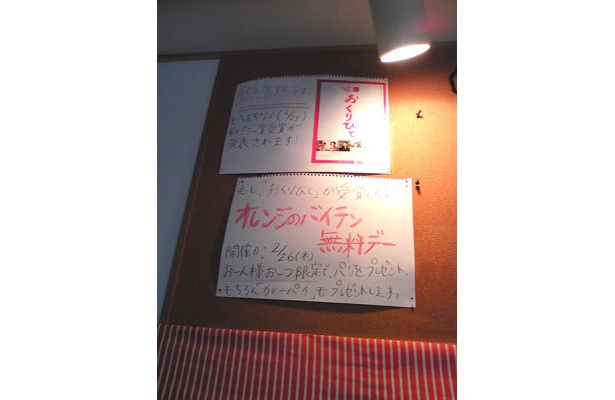 もうまもなく(2/23)
発表されます!
おくりびと
もし、「おくりびと」が受賞したら
オレンジのバイテン
無料デー
開催日:2/26(木)
お一人様お一つ限定で、パンをプレゼント、
もちろん「カレーパイ」もプレゼントします。